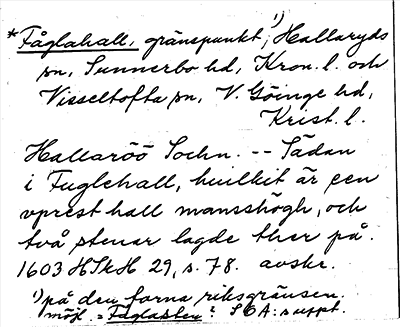 *Fåglahall, gränspunkt, ¹) Hallaryds
sn, Sunnerbo hd, Kron. l. och
Visseltofta sn, V. Göinge hd,
Krist. l.
Hallaröö Sochn. -- Sådan
i Fuglehall, huilkit är een
vprest hall mansshögh, och
två stenar lagde ther på.
1603 HSkH 29, s. 78. avskr.
¹) på den forna riksgränsen.
möjl. = Faglasten? SOA: suppt.